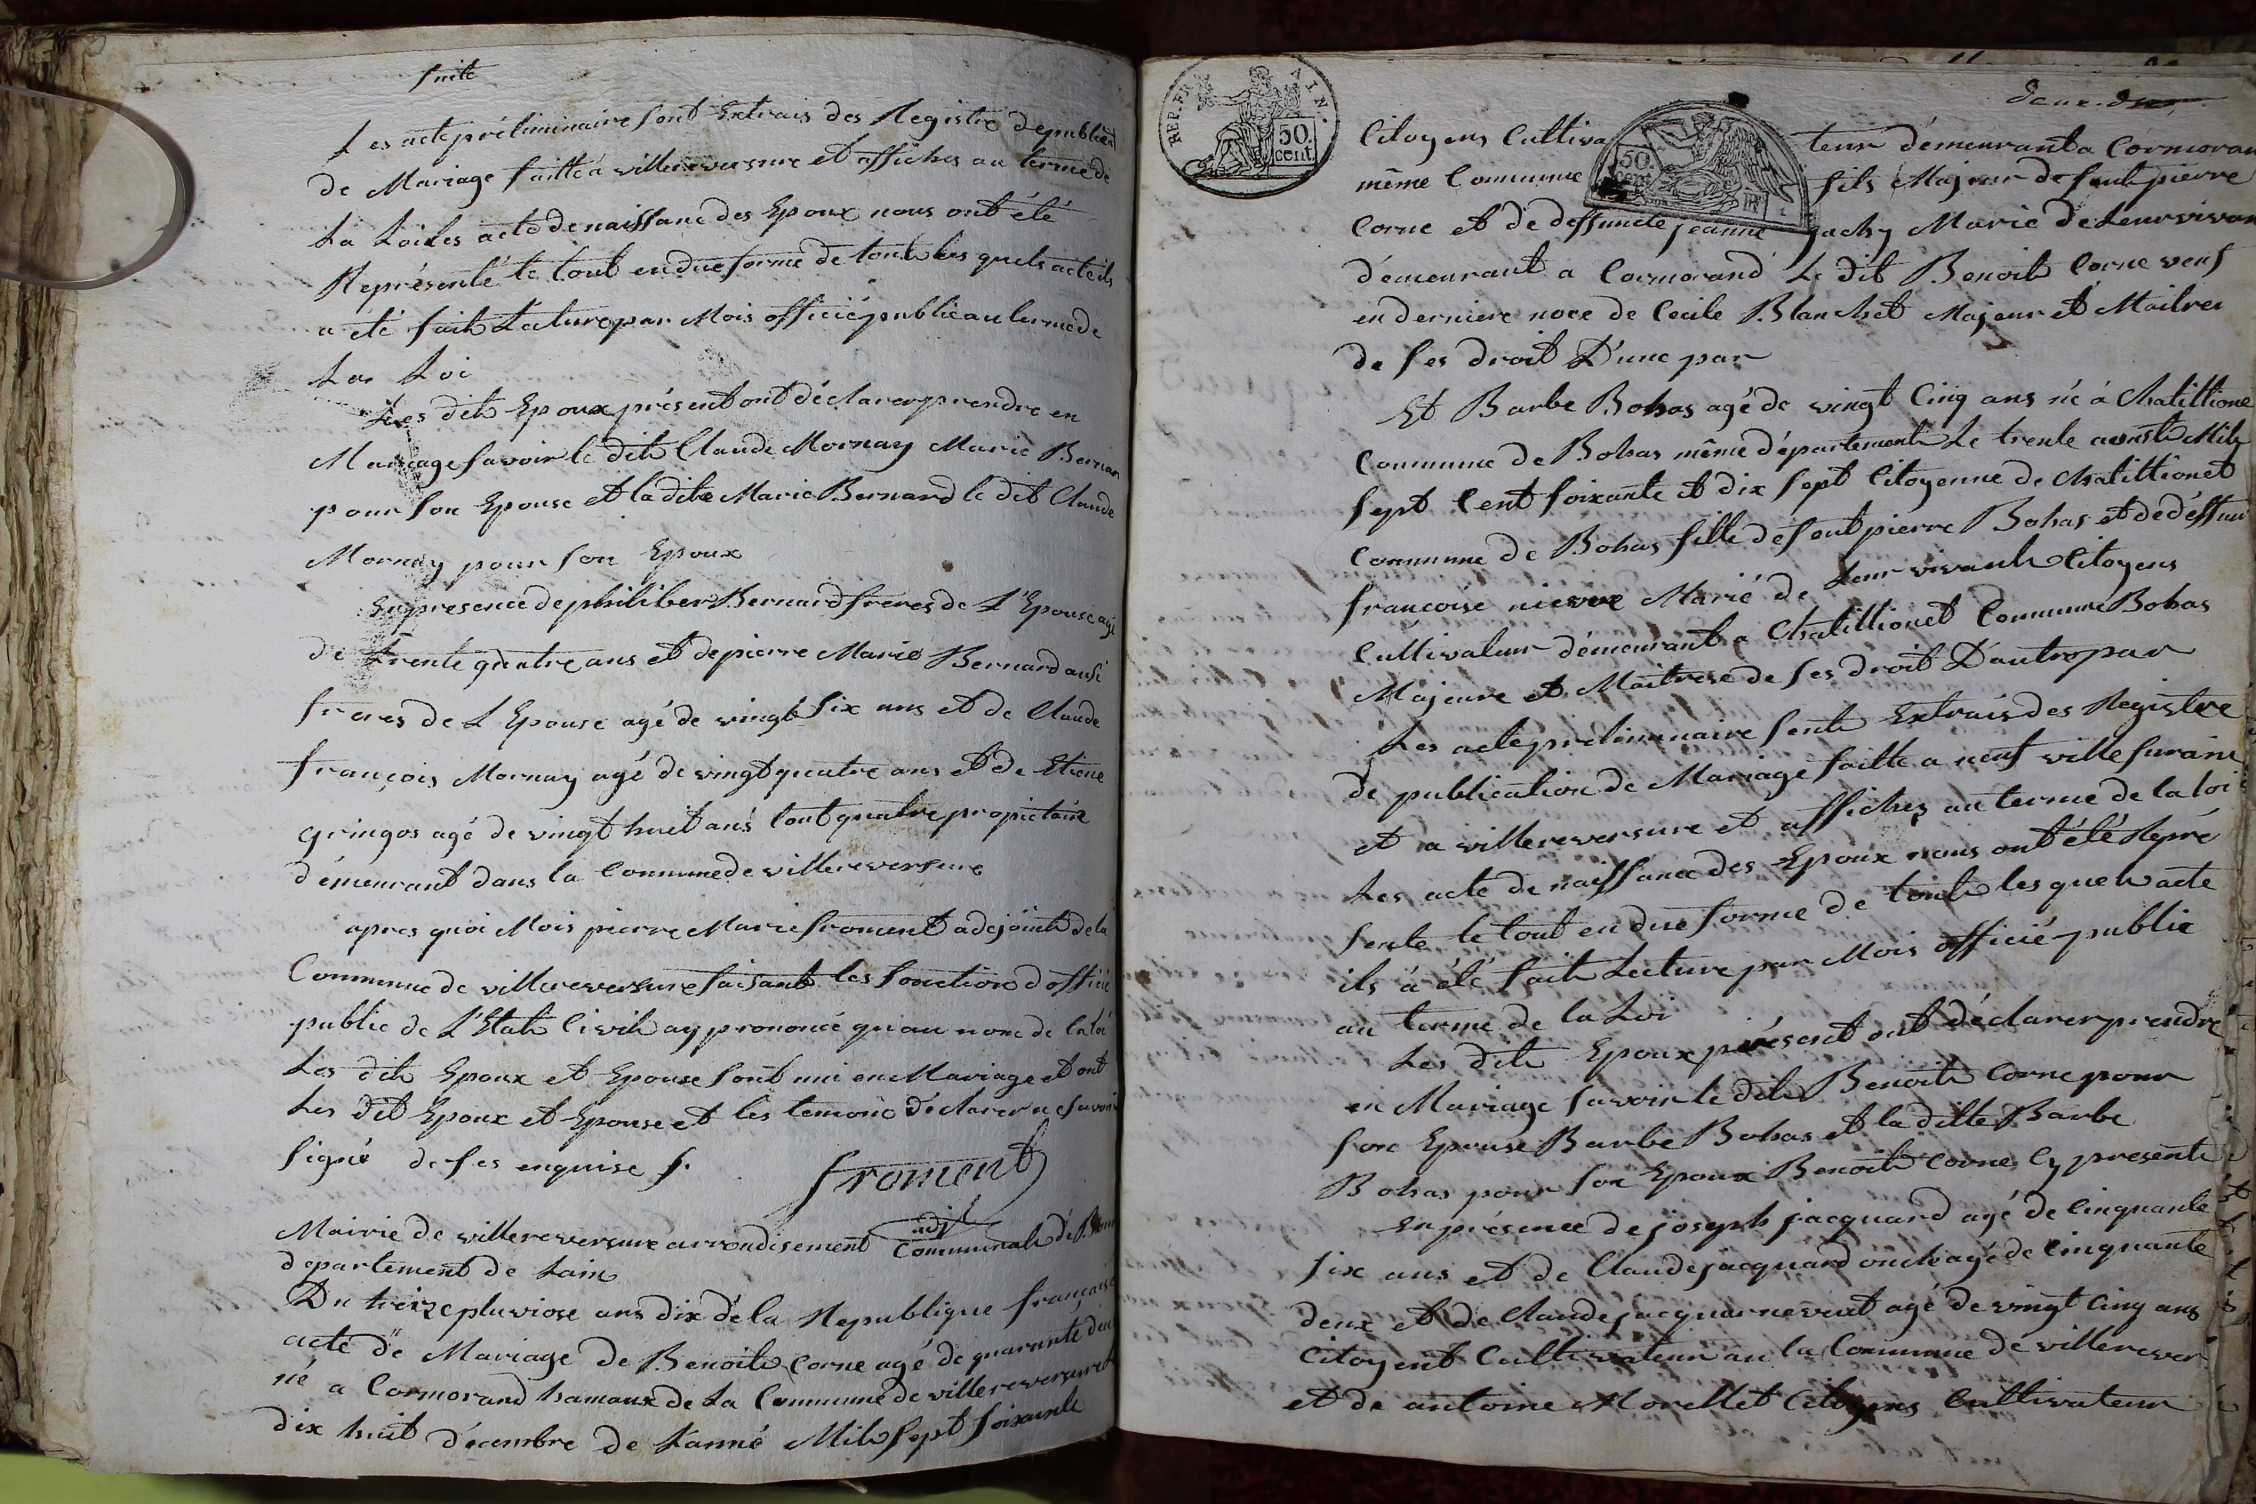 suite
Les acte préliminaire sont Extrais des Registre de publication
de Mariage faitte a villereversure et affiches au terme de
La Loi Les acte de naissance des Epoux nous ont été
Représenté le tout en due forme de tout les quels acte ils
a été fait Lecture par Mois officié public au terme de
La Loi
Les dits Epoux présent ont déclarer prendre en
Mariage savoir le dit Claude Mornay Marie Bernar
pour son Epouse et la dite Marie Bernard le dit Claude
Mornay pour son Epoux
En presence de philiber Bernard freres de L'Epouse agé
de trente quatre ans et de pierre Marie Bernard ausi
freres de L Epouse agé de vingt six ans et de Claude
françois Mornay agé de vingt quatre ans et de Etiene
gringos agé de vingt huit ans tout quatre propietaire
démeurant dans la Commune de villereversure
apres quoi Mois pierre Marie froment adejoint de la
Commune de villereversure faisant les fonction d officié
public de L'Etat Civil ay prononcé qu'au nom de la loi
Les dit Epoux et Epouse sont uni en Mariage et ont
Les dit Epoux et Epouse et les temoin déclarer ne savoir
signé de ses enquise f.
froment
adjt
Mairie de villereversure arrondisement Communal de B
departement de Lain
Du treize pluviose ans dix de la Republique française
acte de Mariage de Benoit Corne agé de quarante deu
né a Cormorand hamaux de La Commune de villereversure
dix huit décembre de Lanné Mil sept soixante
REP. FRA
AIN.
50 cent.
deux.
Citoyens Cultiva teur démeurant a Cormoran
50 cent
même Commune fils Majeur de feut pierre
Corne et de deffuncte jeanne jacky Marié de Leur vivan
démeurant a Cormorand Le dit Benoit Corne veuf
en derniere noce de Cecile Blanchet Majeur et Maitres
de ses droit D'une par
Et Barbe Bohas agé de vingt Cinq ans né à Chatillione
Commune de Bohas même département Le trente aoust Mil
sept Cent soixante et dix sept Citoyenne de Chatillionet
Commune de Bohas fille de feut pierre Bohas et de déffun
francoise Marié de Leur vivant Citoyens
Cultivateur démeurant a Chatillionet Commune Bohas
Majeure et Maitrese de ses droit D'autre par
Les acte préliminaire sont Extrais des Registre
de publication de Mariage faitte a neuf ville surain
et a villereversure et affiches au terme de la loi
Les acte de naissance des Epoux nous ont été Repré
sente le tout en due forme de tout les quels acte
ils a été fait Lecture par Mois officié public
au terme de la Loi
Les dit Epoux présent ont déclarer prendre
en Mariage savoir le dit Benoit Corne pour
son Epouse Barbe Bohas et la ditte Barbe
Bohas pour son Epoux Benoit Corne Cy present
En présence de joseph jacquard agé de Cinquante
six ans et de Claude jacquard oncle agé de Cinquante
deux et de Claude jacquar neveut agé de vingt Cinq ans
Citoyent Cultivateur au la Commune de villerever
et de antoine Morellet Citoyens Cultivateur